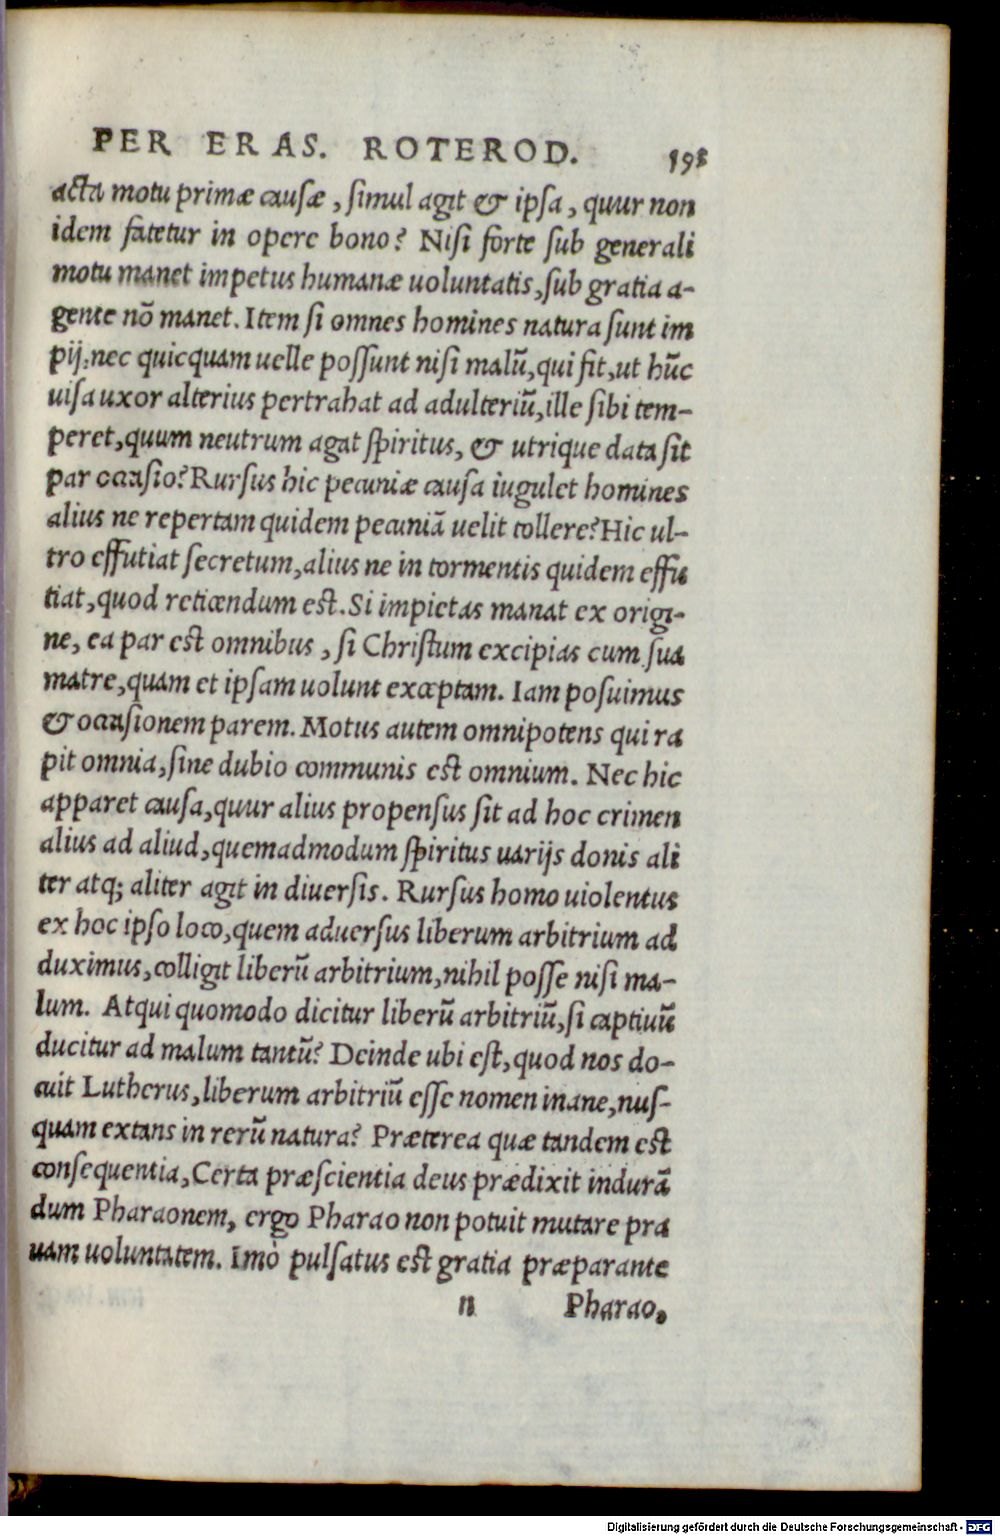 PER ERAS. ROTEROD. 198
acta motu primæ causæ, simul agit & ipsa, quur non
idem fatetur in opere bono? Nisi forte sub generali
motu manet impetus humanæ uoluntatis, sub gratia a-
gente nō manet. Item si omnes homines natura sunt im
pij: nec quicquam uelle possunt nisi malū, qui fit, ut hūc
uisa uxor alterius pertrahat ad adulteriū, ille sibi tem-
peret, quum neutrum agat spiritus, & utrique data sit
par occasio? Rursus hic pecuniæ causa iugulet homines
alius ne repertam quidem pecuniā uelit tollere? Hic ul-
tro effutiat secretum, alius ne in tormentis quidem effu
tiat, quod reticendum est. Si impietas manat ex origi-
ne, ea par est omnibus, si Christum excipias cum sua
matre, quam et ipsam uolunt exceptam. Iam posuimus
& occasionem parem. Motus autem omnipotens qui ra
pit omnia, sine dubio communis est omnium. Nec hic
apparet causa, quur alius propensus sit ad hoc crimen
alius ad aliud, quemadmodum spiritus uarijs donis ali
ter atq; aliter agit in diuersis. Rursus homo uiolentus
ex hoc ipso loco, quem aduersus liberum arbitrium ad
duximus, colligit liberū arbitrium, nihil posse nisi ma-
lum. Atqui quomodo dicitur liberū arbitriū, si captiuū
ducitur ad malum tantū? Deinde ubi est, quod nos do-
cuit Lutherus, liberum arbitriū esse nomen inane, nus-
quam extans in rerū natura? Præterea quæ tandem est
consequentia, Certa præscientia deus prædixit indurā
dum Pharaonem, ergo Pharao non potuit mutare pra
uam uoluntatem. Imò pulsatus est gratia præparante
n Pharao,
Digitalisierung gefördert durch die Deutsche Forschungsgemeinschaft - DFG